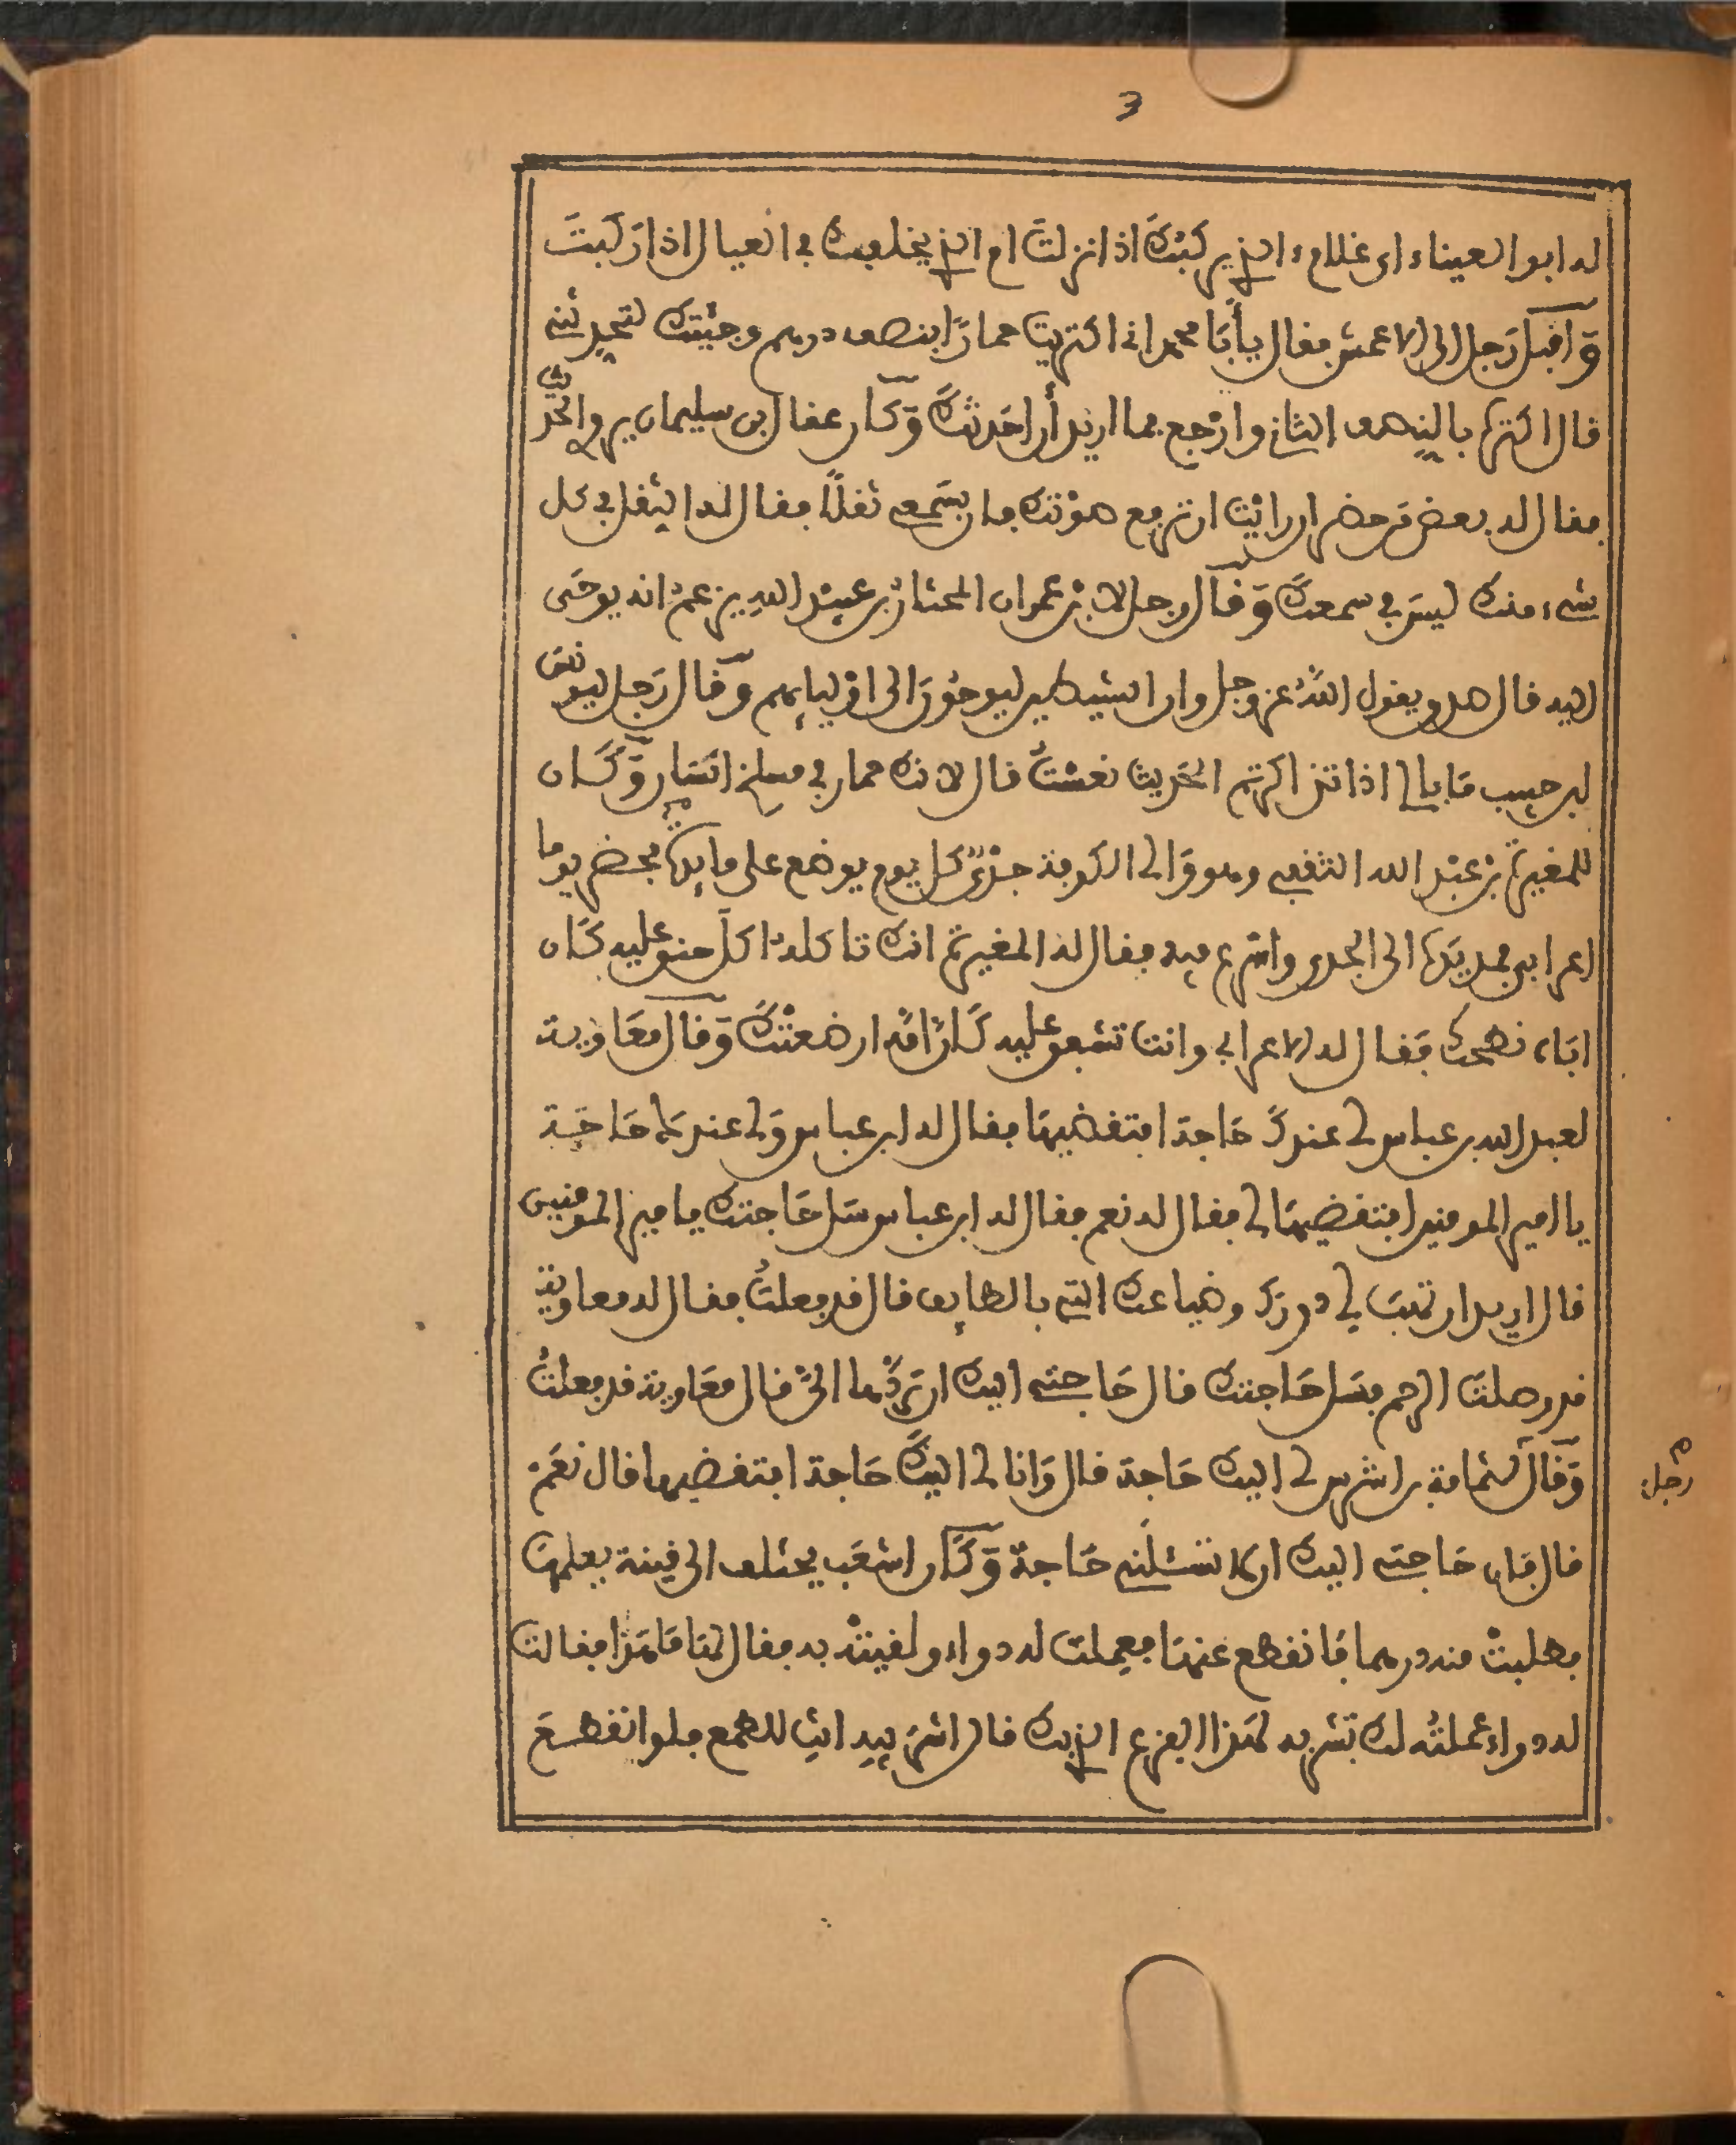 3
له ابو العيناء اي غلام الذي ركبتك اذا نزلت ام الذي يخلفك في العيال اذا ركبت
وَاقبل رَجل الى الاعمش فقال يأبَا محمد اني اكتريت حمارًا بنصف درهم وجئتك لتحدثني
قال اكتر بالنصف الثاني وارْجع فما اريد أن احَدثكَ وَكان عفال بن سليمان يروي الحديث
فقال له بعض مَن حضر ان رايْت ان ترفع صوْتك فان بسَمعي ثقلًا فقال له الثقل في كل
شيء منك ليسَ في سمعكَ وَقال رجل لابن عمران المختارُ بن عبيْد الله يزعمُ انه يوحَى
اليه قال صدق يقول اللهُ عز وجل وان الشيطين ليوحُونَ الى اوْليائهم وَقال رَجل ليونس
بن حبيب مَا بالي اذا تذاكرتم الحَديث نعسْتُ قال لانك حمار في مسلخ انسَان وَكَان
للمغيرة بْن عبْد الله الثقفي وهو وَالى الكوفة جدْيٌ كل يوم يوضع على مايدته فحضر يوما
اعرابي فمد يَده الى الجدي واسْرع فيه فقال له المغيرة انك تاكله اكل حنق عليه كَان
ابَاه نطحك فقَال له الاعرابي وانت تشفق عليه كَانَّ امَّه ارضعتْكَ وَقال معَاوية
لعبد الله بن عباس لي عندكَ حَاجة افتقضيهَا فقال له ابن عباس وَلي عندك حَاجَة
يا امير المومنين افتقضيهَا لي فقال له نعم فقال له ابن عباس سَل حَاجتك يامير المومنين
قال اريد ان تهَبَ لي دورك وضياعك التي بالطايف قال قد فعلتُ فقال له معاوية
قد وصلتَ الرحم فسَل حَاجتك قال حَاجتي اليك ان تردَّها اليَّ قال معَاوية قد فعلتُ
وَقال لثمامة بن اشرس لي اليك حَاجة قال وَانا لي اليكَ حَاجة افتقضيها قال نعَمْ
رجل
قال فان حَاجتي اليك ان لا تسْئلني حَاجة وَكَان اشعَب يختلف الى قينة يعلمهَا
فطلبتْ منه درهما فانقطع عنهَا فعملت له دواء ولقيتْه به فقال لهَا مَا هَذا فقالت
له دواء عملتُه لك تشربه لهَذا الفزع الذي بك قال اشرَبيه انتِ للطمع فلو انقطَعَ